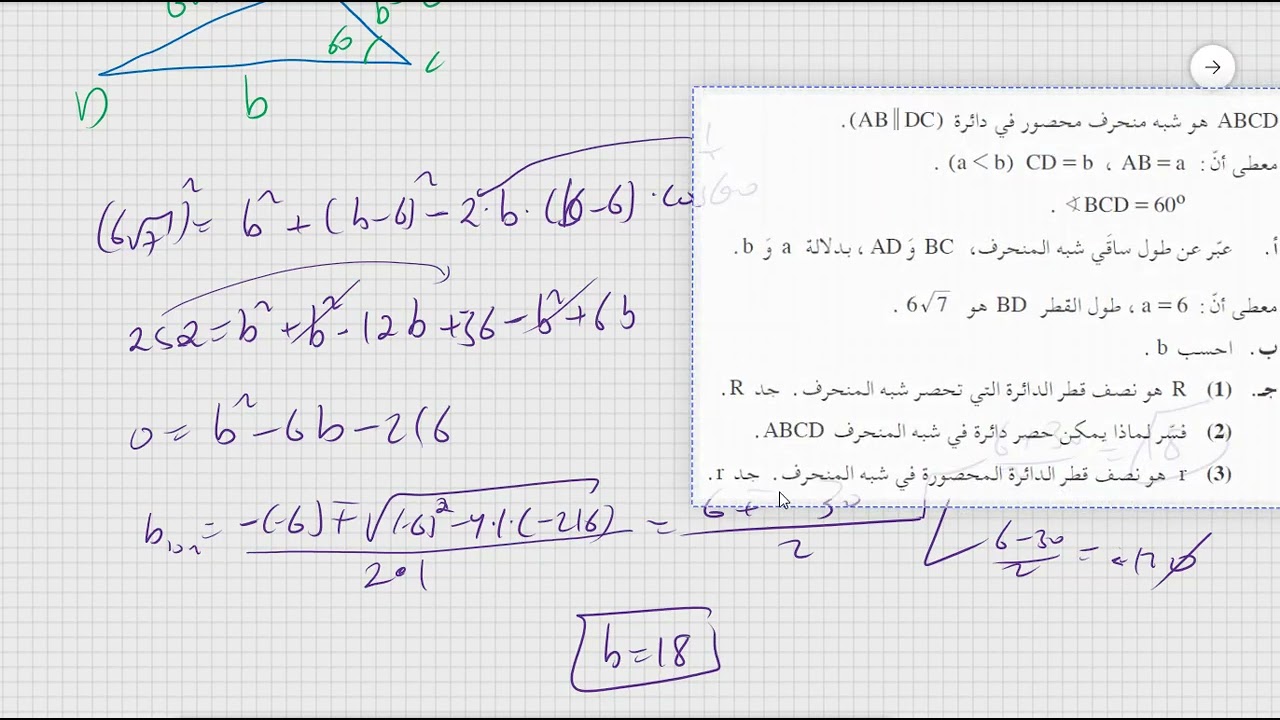 60
b
C
D
b
(6√7)² = b² + (b-6)² - 2·b·(b-6)·cos60
252 = b² + b² - 12b + 36 - b² + 6b
0 = b² - 6b - 216
b₁,₂ = -(-6) ∓ √(-6)² - 4·1·(-216) / 2·1 = 6 ∓ 30 / 2
6-30 / 2 = -12
b = 18
ABCD هو شبه منحرف محصور في دائرة (AB ∥ DC).
معطى أنّ: AB = a ، CD = b (a < b) .
∢BCD = 60° .
أ. عبّر عن طول ساقَي شبه المنحرف، BC وَ AD ، بدلالة a وَ b .
معطى أنّ: a = 6 ، طول القطر BD هو 6√7 .
ب. احسب b .
جـ. (1) R هو نصف قطر الدائرة التي تحصر شبه المنحرف . جد R .
(2) فسّر لماذا يمكن حصر دائرة في شبه المنحرف ABCD .
(3) r هو نصف قطر الدائرة المحصورة في شبه المنحرف . جد r .